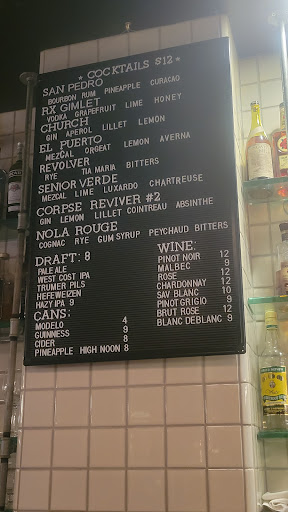 * COCKTAILS $12 *
SAN PEDRO
BOURBON RUM PINEAPPLE CURACAO
RX GIMLET
VODKA GRAPEFRUIT LIME HONEY
CHURCH
GIN APEROL LILLET LEMON
EL PUERTO
MEZCAL ORGEAT LEMON AVERNA
REVOLVER
RYE TIA MARIA BITTERS
SENIOR VERDE
MEZCAL LIME LUXARDO CHARTREUSE
CORPSE REVIVER #2
GIN LEMON LILLET COINTREAU ABSINTHE
NOLA ROUGE
COGNAC RYE GUM SYRUP PEYCHAUD BITTERS
DRAFT: 8
PALE ALE
WEST COST IPA
TRUMER PILS
HEFEWEIZEN
HAZY IPA 9
CANS:
MODELO 4
GUINNESS 9
CIDER 8
PINEAPPLE HIGH NOON 8
WINE:
PINOT NOIR 12
MALBEC 9
ROSE 12
CHARDONNAY 12
SAV BLANC 10
PINOT GRIGIO 9
BRUT ROSE 12
BLANC DE BLANC 9